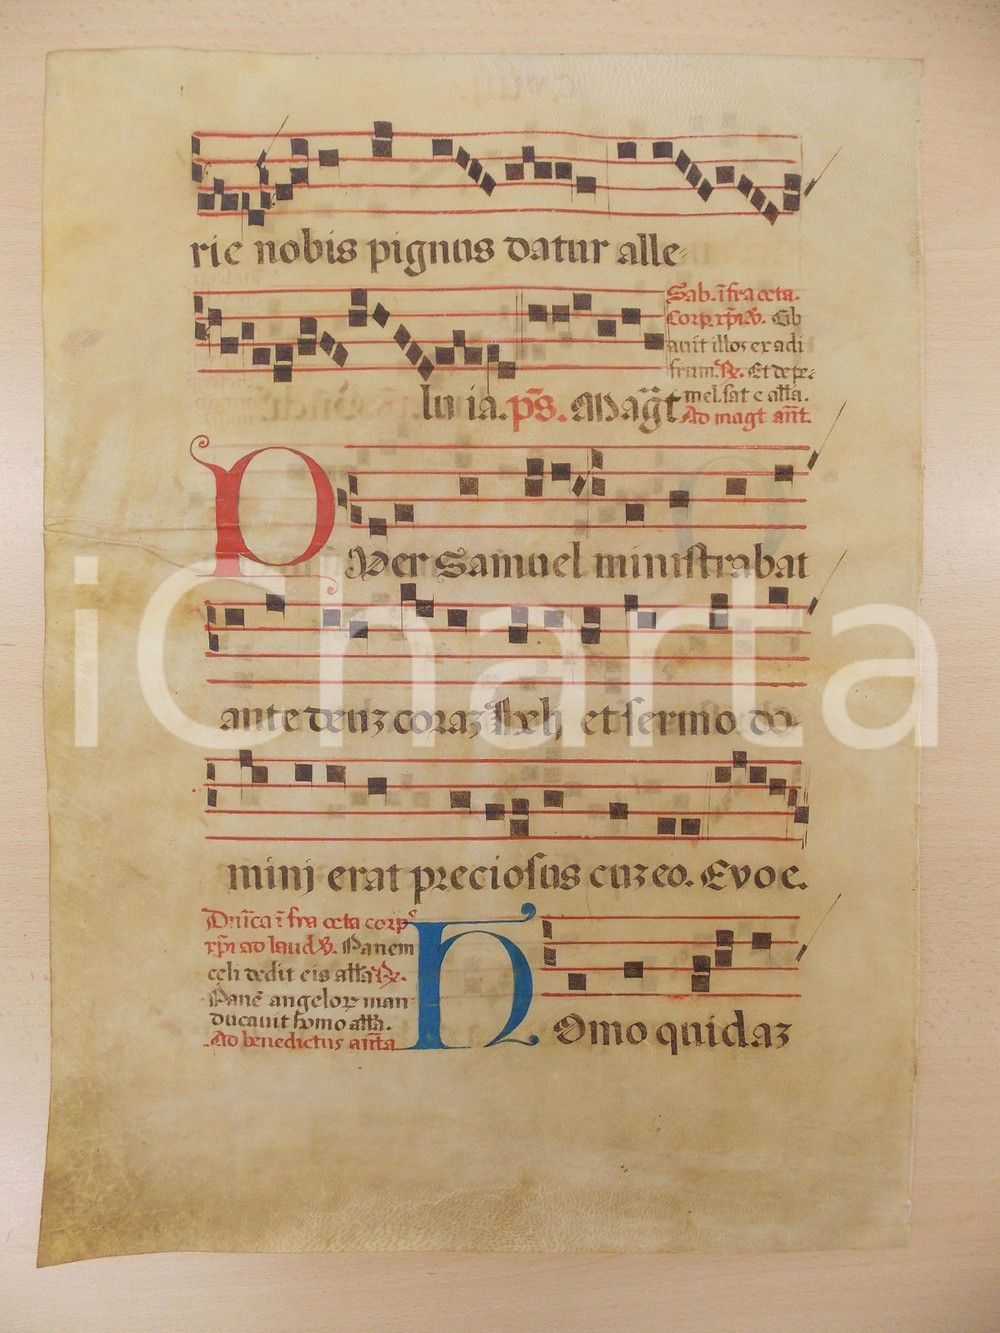 rie nobis pignus datur alle-
Sab. ĩfra octa.
Corp. xp̃i. ℣. Cib
avit illos ex adi
luia. p̃s. Mag̃t
frum. ℟. Et de pe-
mel. sat e aĩla.
Ad magt añt.
P
Uer Samuel ministrabat
ante deuz coraz heli et sermo do-
minj erat preciosus cuz eo. Evoe.
Dñica ĩfra octa corp
xp̃i ad laud. ℣. Panem
celi dedit eis alla ℟.
Panẽ angeloꝝ man-
ducavit homo alla.
Ad benedictus añta
H
Omo quidaz
iCharta